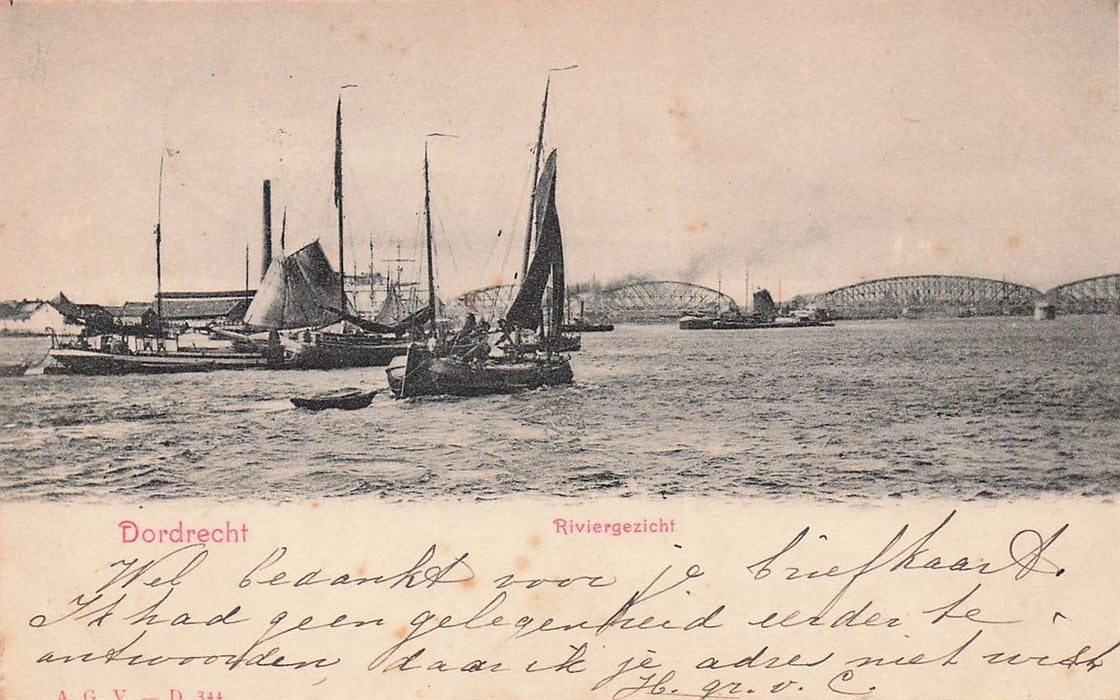 Dordrecht
Riviergezicht
Wel bedankt voor je briefkaart.
Ik had geen gelegenheid eerder te
antwoorden, daar ik je adres niet wist
H. gr. v. C.
A. G. V. — D. 344